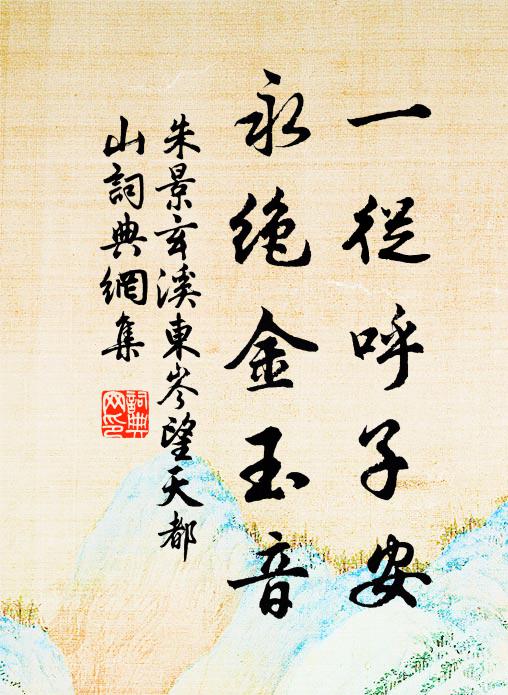 一從呼子安
永絶金玉音
朱景玄溪東岑望天都
山詞典網集
詞典
网印